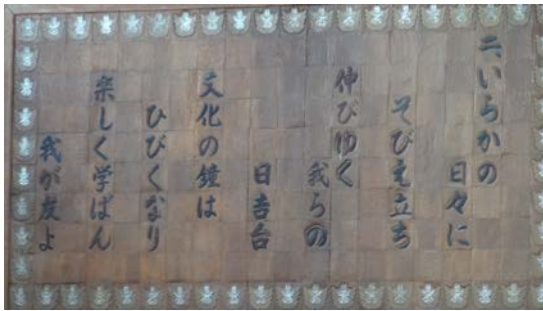 二、いらかの
日々に
そびえ立ち
伸びゆく
我らの
日吉台
文化の鐘は
ひびくなり
楽しく学ばん
我が友よ